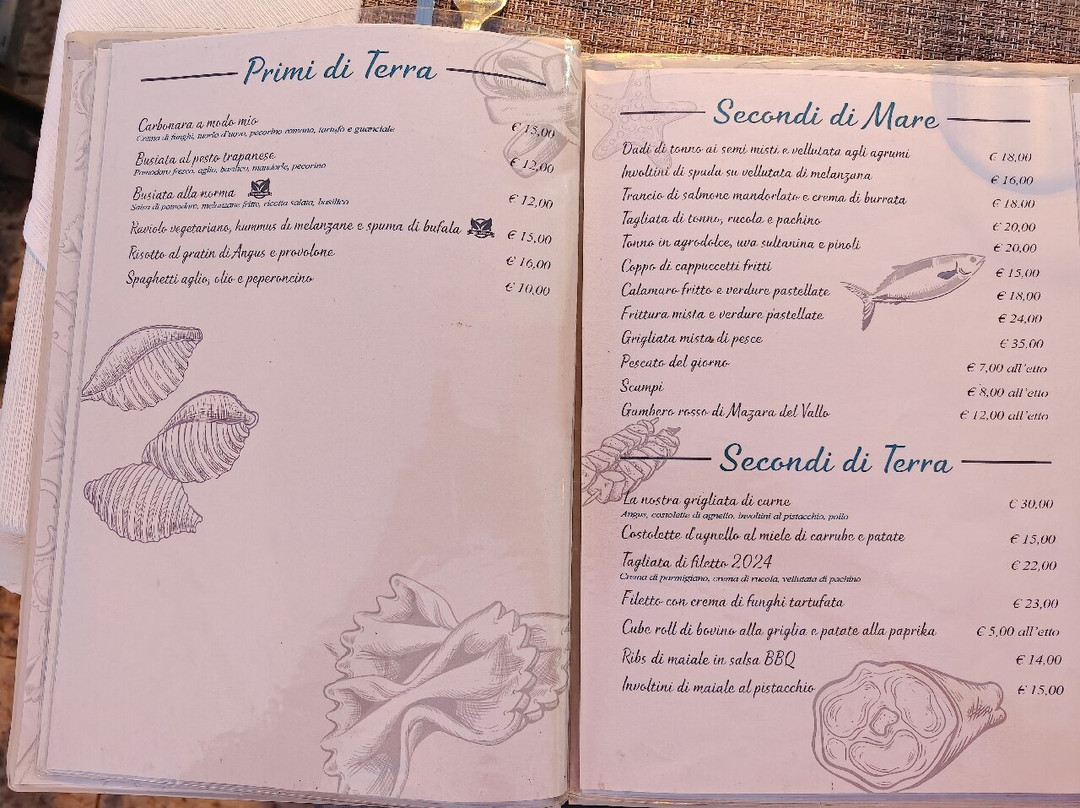 Primi di Terra
Carbonara a modo mio € 15,00
Crema di funghi, tuorlo d'uovo, pecorino romano, tartufo e guanciale
Busiata al pesto trapanese € 12,00
Pomodoro fresco, aglio, basilico, mandorle, pecorino
Busiata alla norma € 12,00
Salsa di pomodoro, melanzane fritte, ricotta salata, basilico
Raviolo vegetariano, hummus di melanzane e spuma di bufala € 15,00
Risotto al gratin di Angus e provolone € 16,00
Spaghetti aglio, olio e peperoncino € 10,00
Secondi di Mare
Dadi di tonno ai semi misti e vellutata agli agrumi € 18,00
Involtini di spada su vellutata di melanzana € 16,00
Trancio di salmone mandorlato e crema di burrata € 18,00
Tagliata di tonno, rucola e pachino € 20,00
Tonno in agrodolce, uva sultanina e pinoli € 20,00
Coppo di cappuccetti fritti € 15,00
Calamaro fritto e verdure pastellate € 18,00
Frittura mista e verdure pastellate € 24,00
Grigliata mista di pesce € 35,00
Pescato del giorno € 7,00 all'etto
Scampi € 8,00 all'etto
Gambero rosso di Mazara del Vallo € 12,00 all'etto
Secondi di Terra
La nostra grigliata di carne € 30,00
Angus, costolette di agnello, involtini al pistacchio, pollo
Costolette d'agnello al miele di carrube e patate € 15,00
Tagliata di filetto 2024 € 22,00
Crema di parmigiano, crema di rucola, vellutata di pachino
Filetto con crema di funghi tartufata € 23,00
Cube roll di bovino alla griglia e patate alla paprika € 5,00 all'etto
Ribs di maiale in salsa BBQ € 14,00
Involtini di maiale al pistacchio € 15,00